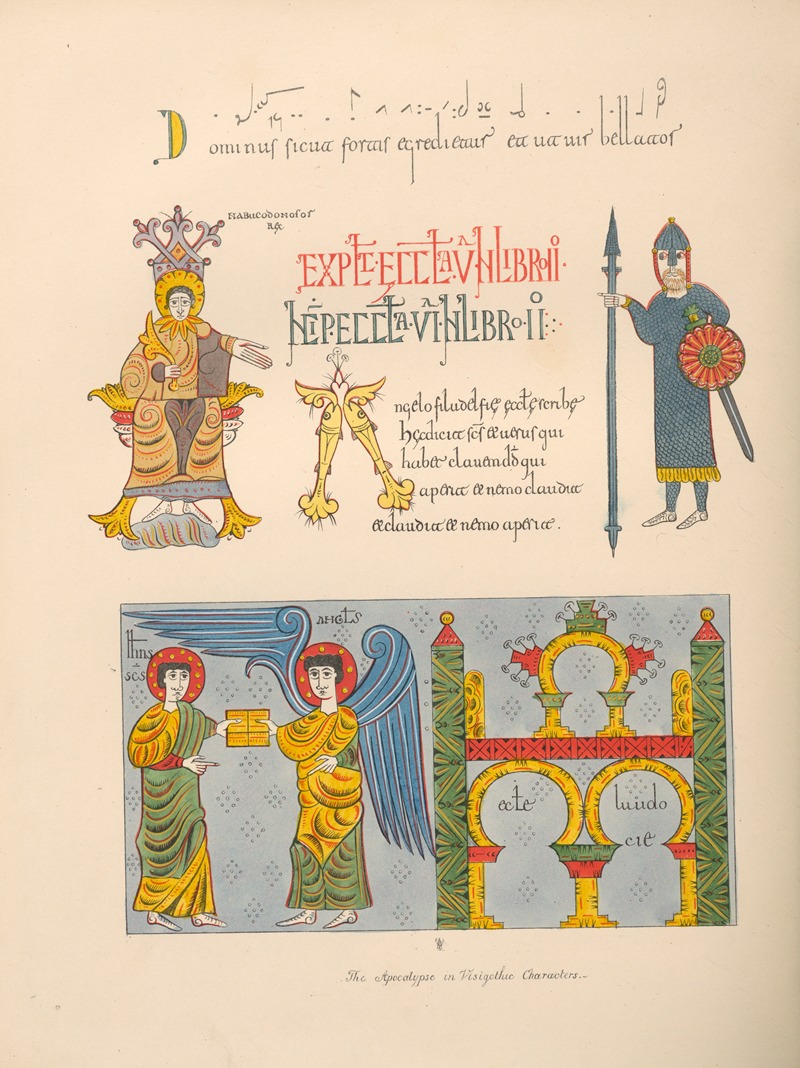 Dominus sicut fortis egredietur et ut uir bellator
NABUCODONOSOR
REX
EXPLT·ECCLA·V·IN LIBRO·II·
INCIP·ECCLA·VI·IN LIBRO·II
Angelo filadelfię ęcclę scribę
hęc dicit scs et uerus qui
habet clauem dd qui
aperit et nemo claudit
et claudit et nemo aperit.
Ihns
scs
ANGLS
ecle
luudo
cie
The Apocalypse in Visigothic Characters.